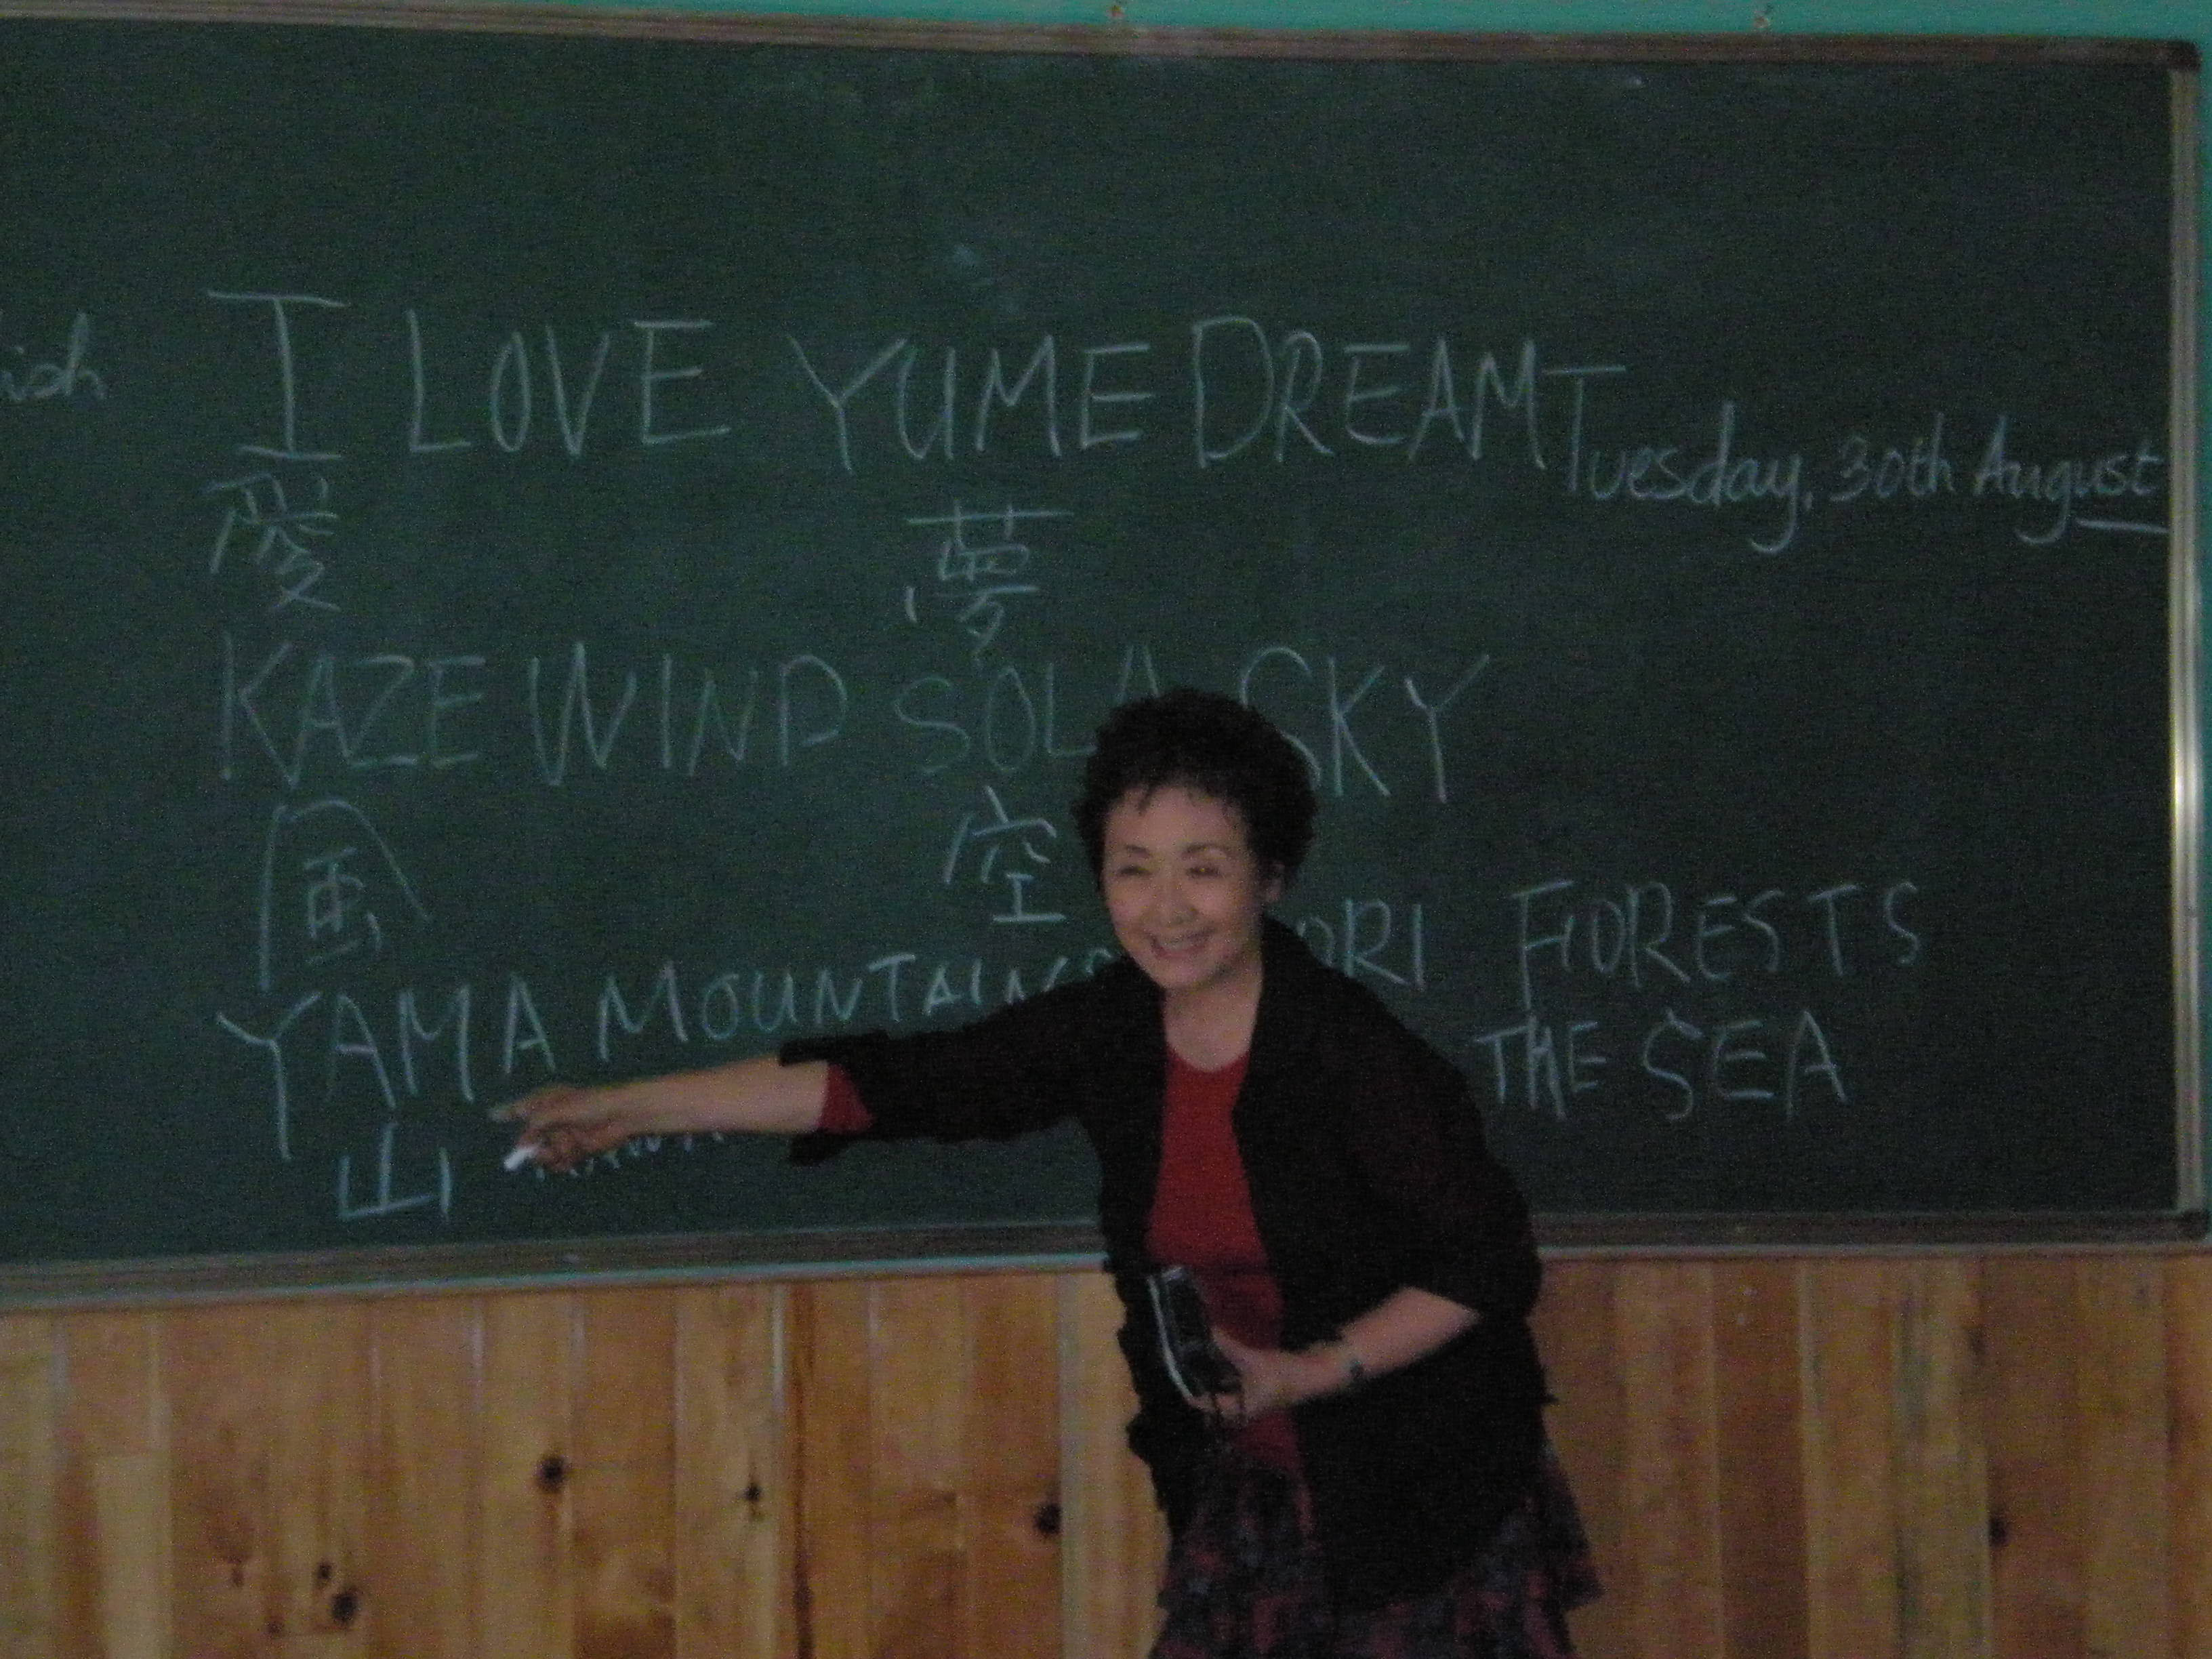 I LOVE YUME DREAM Tuesday, 30th August
愛 夢
KAZE WIND SOLA SKY
風 空
YAMA MOUNTAINS FORESTS
THE SEA
山